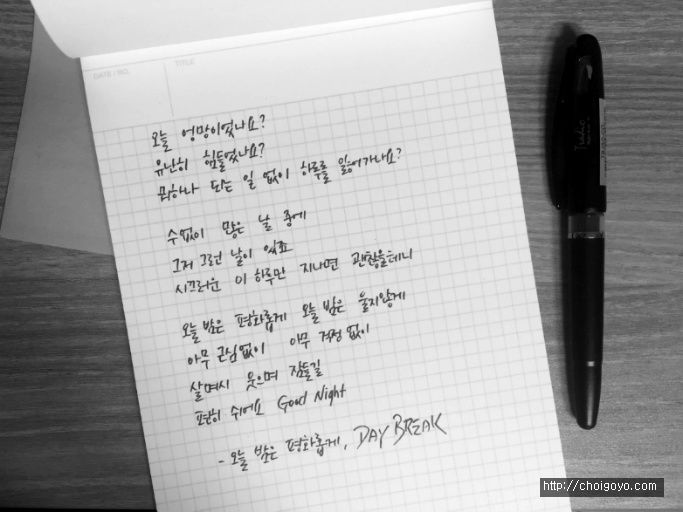 DATE / NO.
TITLE
오늘 엉망이었나요?
유난히 힘들었나요?
뭐하나 되는 일 없이 하루를 잃어가나요?
수없이 많은 날 중에
그저 그런 날이 있죠
시끄러운 이 하루만 지나면 괜찮을테니
오늘 밤은 평화롭게 오늘 밤은 울지않게
아무 근심없이 아무 걱정없이
살며시 웃으며 잠들길
편히 쉬어요 Good Night
- 오늘 밤은 평화롭게, DAY BREAK
http://choigoyo.com